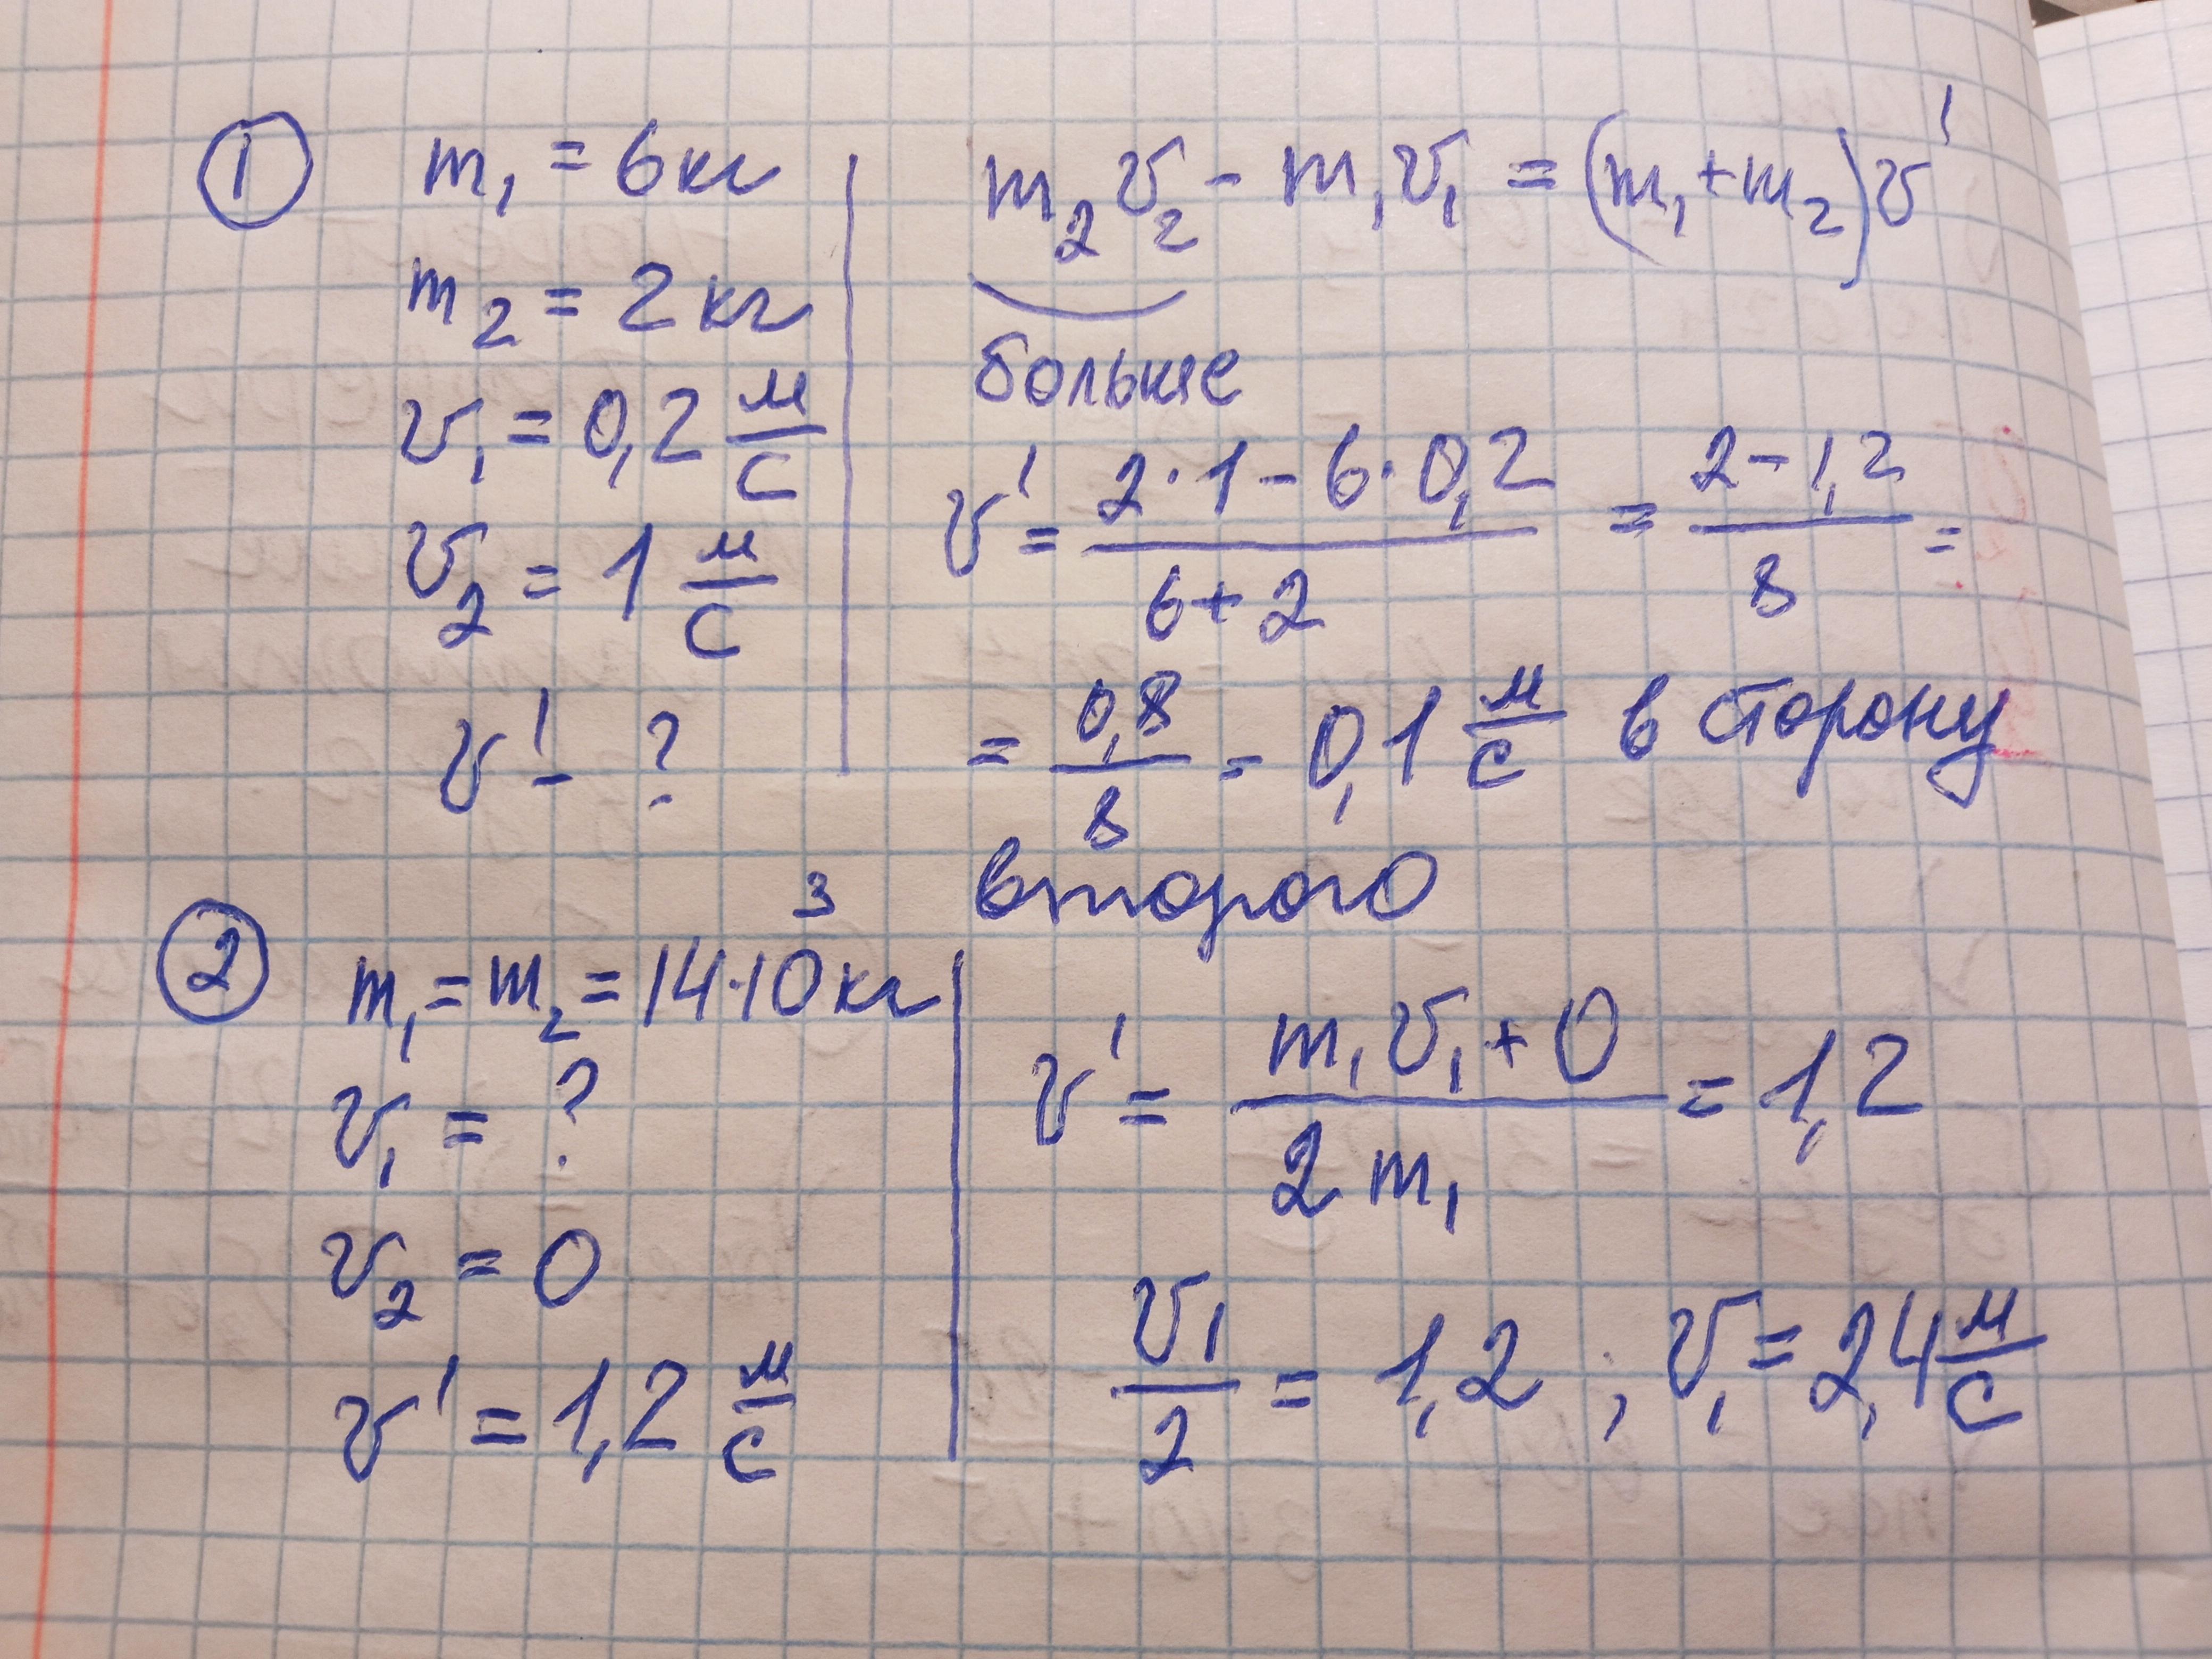 ① m₁ = 6 кг
m₂ = 2 кг
v₁ = 0,2 м/с
v₂ = 1 м/с
v' - ?
m₂v₂ - m₁v₁ = (m₁+m₂)v'
больше
v' = (2·1 - 6·0,2)/(6+2) = (2-1,2)/8 =
= 0,8/8 = 0,1 м/с в сторону
второго
② m₁ = m₂ = 14·10³ кг
v₁ = ?
v₂ = 0
v' = 1,2 м/с
v' = (m₁v₁+0)/(2m₁) = 1,2
v₁/2 = 1,2 ; v₁ = 2,4 м/с